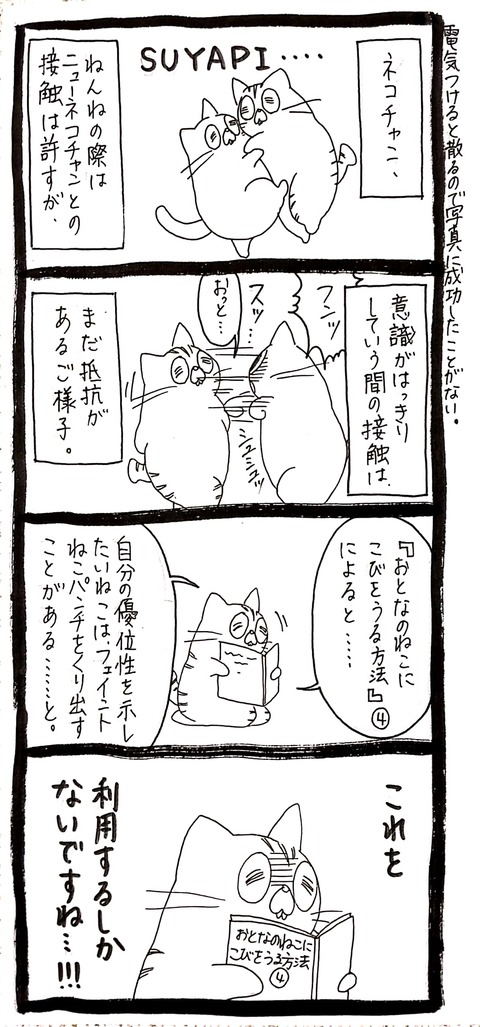 電気つけると散るので写真に成功したことがない。
ネコチャン、
SUYAPI‥‥
ねんねの際は
ニューネコチャンとの
接触は許すが、
意識がはっきり
している間の接触は、
フンッ
スッ…
おっと…
シュシュッ
まだ抵抗が
あるご様子。
『おとなのねこに
こびをうる方法』④
によると……
自分の優位性を示し
たいねこは、フェイント
ねこパンチをくり出す
ことがある……と。
これを
利用するしか
ないですね…!!!
おとなのねこに
こびをうる方法
④